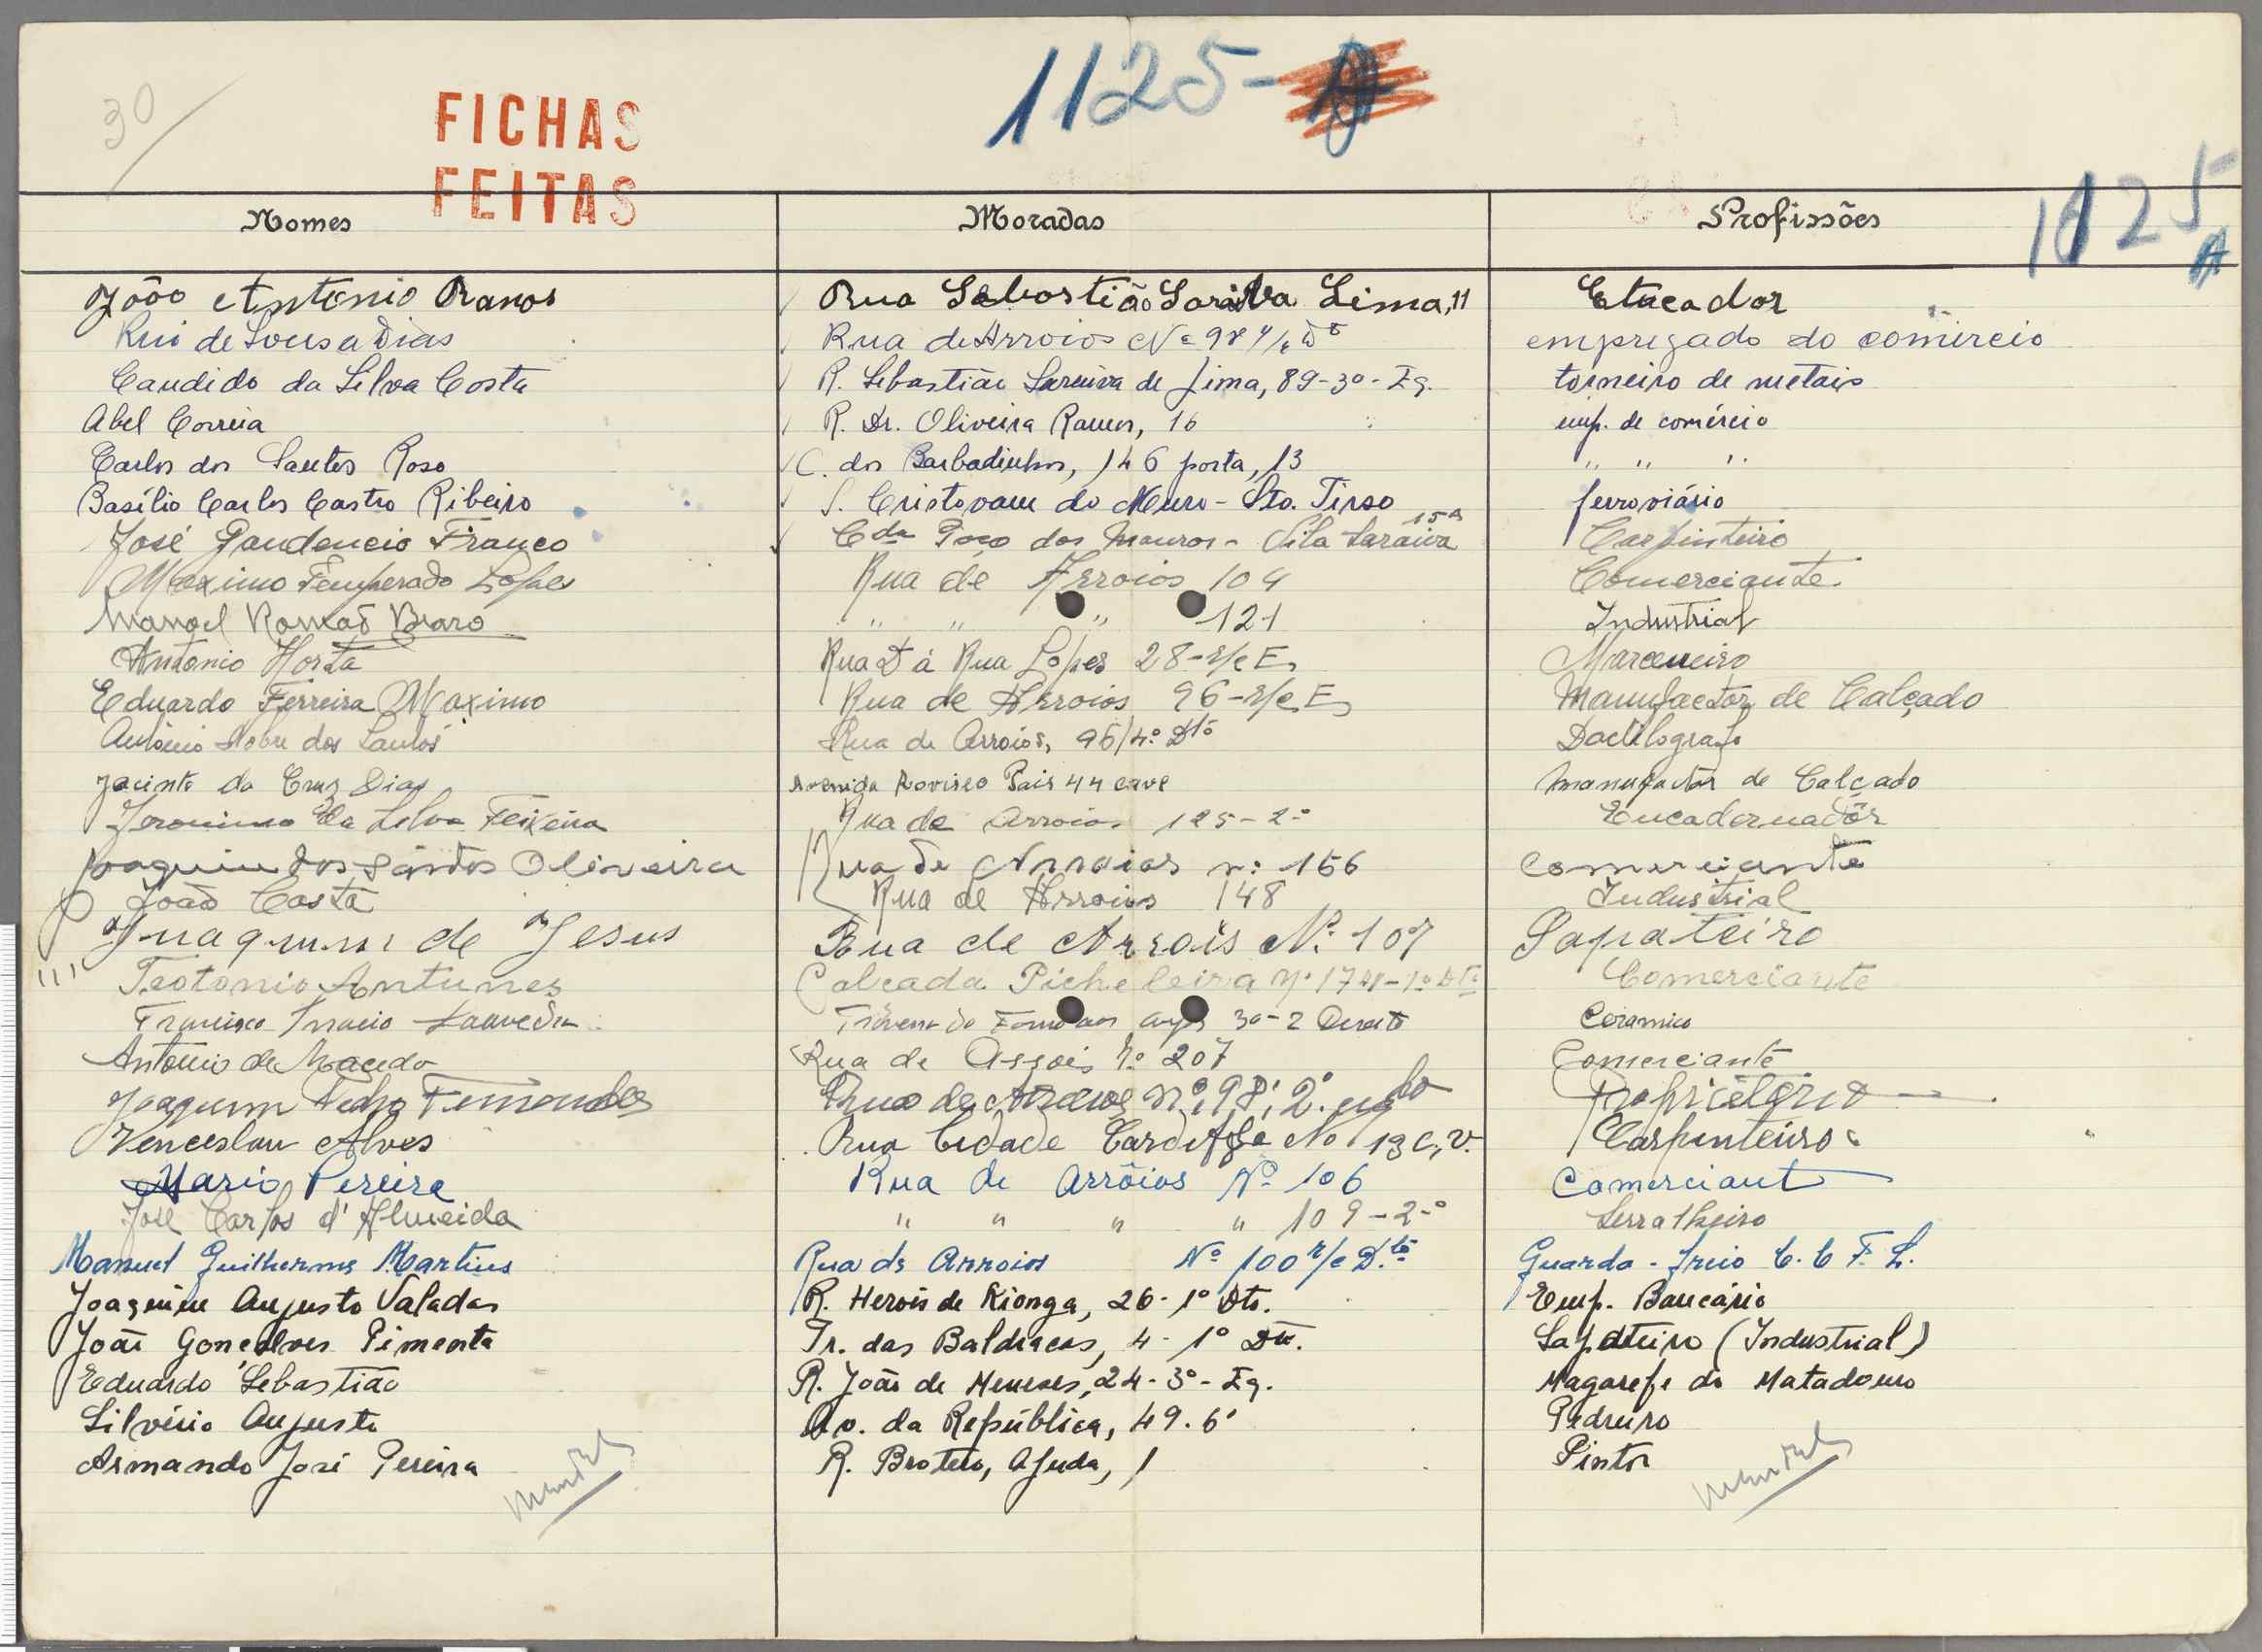 30
1125-A
FICHAS
FEITAS
1125
A
Nomes Moradas Profissões
João Antonio Ramos Rua Sebostião Saraiva Lima, 11 Etucador
Rui de Sousa Dias Rua de Arroios Nº 98 empregado do comércio
Candido da Silva Costa R. Sebastião Saraiva de Lima, 89-3º-Eq. torneiro de metais
Abel Correia R. Dr. Oliveira Ramos, 16 emp. de comércio
Carlos dos Santos Rosa C. dos Barbadinhos, 146 porta, 13 " " "
Basílio Carlos Castro Ribeiro S. Cristovam do Muro - Sto. Tirso ferroviário
José Gaudencio Franco Cda Poço dos Mouros - Vila Saraiva 15A Carpinteiro
Maximo Temperado Lopes Rua de Arroios 104 Comerciante
Manoel Romão Bravo " " " 121 Industrial
António Horta Rua D à Rua Lopes 28-r/c E. Marceneiro
Eduardo Ferreira Maximo Rua de Arroios 96-r/c E. Manufactor de Calçado
António Nobre dos Santos Rua de Arroios, 96/4º Dto Dactilografo
Jacinto da Cruz Dias Avenida Rovisco Pais 44 cave Manufactor de Calçado
Jeronimo da Silva Teixeira Rua de Arroios 125-2º Encadernador
Joaquim dos Santos Oliveira Rua de Arroios nº 156 Comerciante
João Costa Rua de Arroios 148 Industrial
Juaquim de Jesus Rua de Arrois Nº 107 Sapateiro
Teotonio Antunes Calcada Picheleira Nº 174-1º Dto Comerciante
Francisco Inacio Saavedra Travessa do Forno aos Anjos 30-2 Direito Ceramico
António de Macedo Rua de Arroios Nº 207 Comerciante
Joaquim Pedro Fernandes Rua de Arroios nº 98, 2º Proprietário
Venceslau Alves Rua Cidade Cardiff No 13 c,v. Carpinteiro
Mario Pereira Rua de Arrôios Nº 106 Comerciant
José Carlos d'Almeida " " " " 109-2º Serralheiro
Manuel Guilherme Martins Rua de Arroios Nº 100 r/c D.to Guarda-freio C.C.F.L.
Joaquim Augusto Valadas R. Herois de Kionga, 26-1º Dto. Emp. Bancário
João Gonçalves Pimenta Tr. das Baldracas, 4-1º Dto. Sapateiro (Industrial)
Eduardo Sebastião R. João de Meneses, 24-3º-Eq. Magarefe do Matadouro
Silvério Augusto Av. da República, 49.6º Pedreiro
Armando José Pereira R. Brotero, Ajuda, 1 Pintor